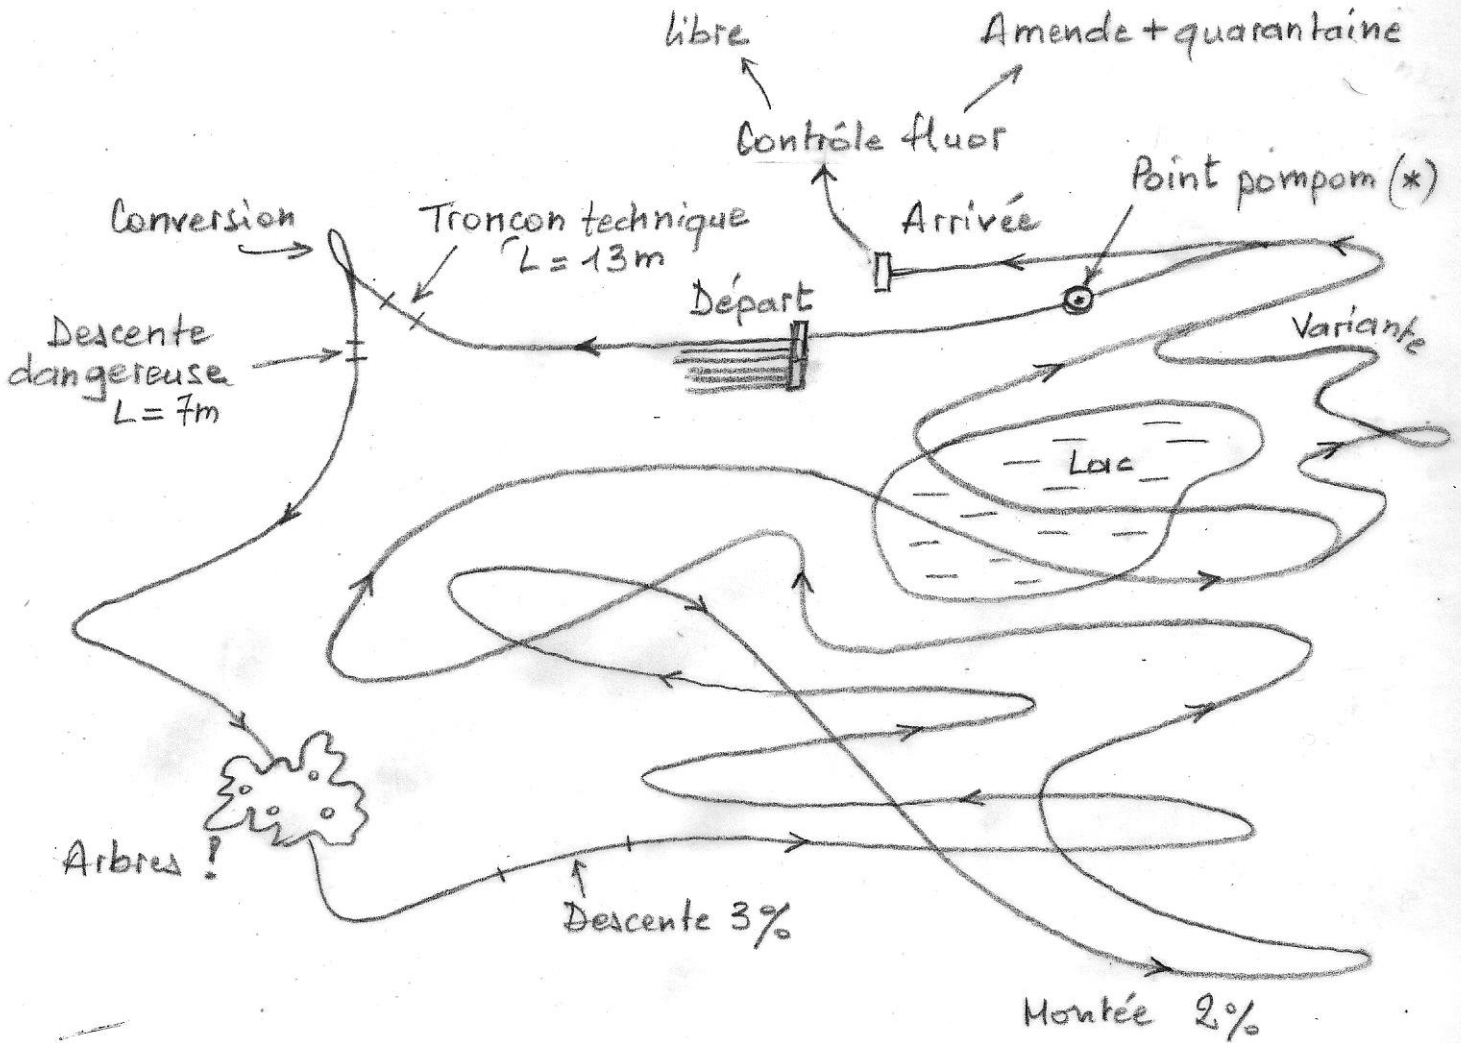 libre
Amende + quarantaine
Contrôle fluor
Point pompom (*)
Conversion
Tronçon technique
L = 13m
Arrivée
Départ
Variante
Descente
dangereuse
L = 7m
Lac
Arbres !
Descente 3%
Montée 2%